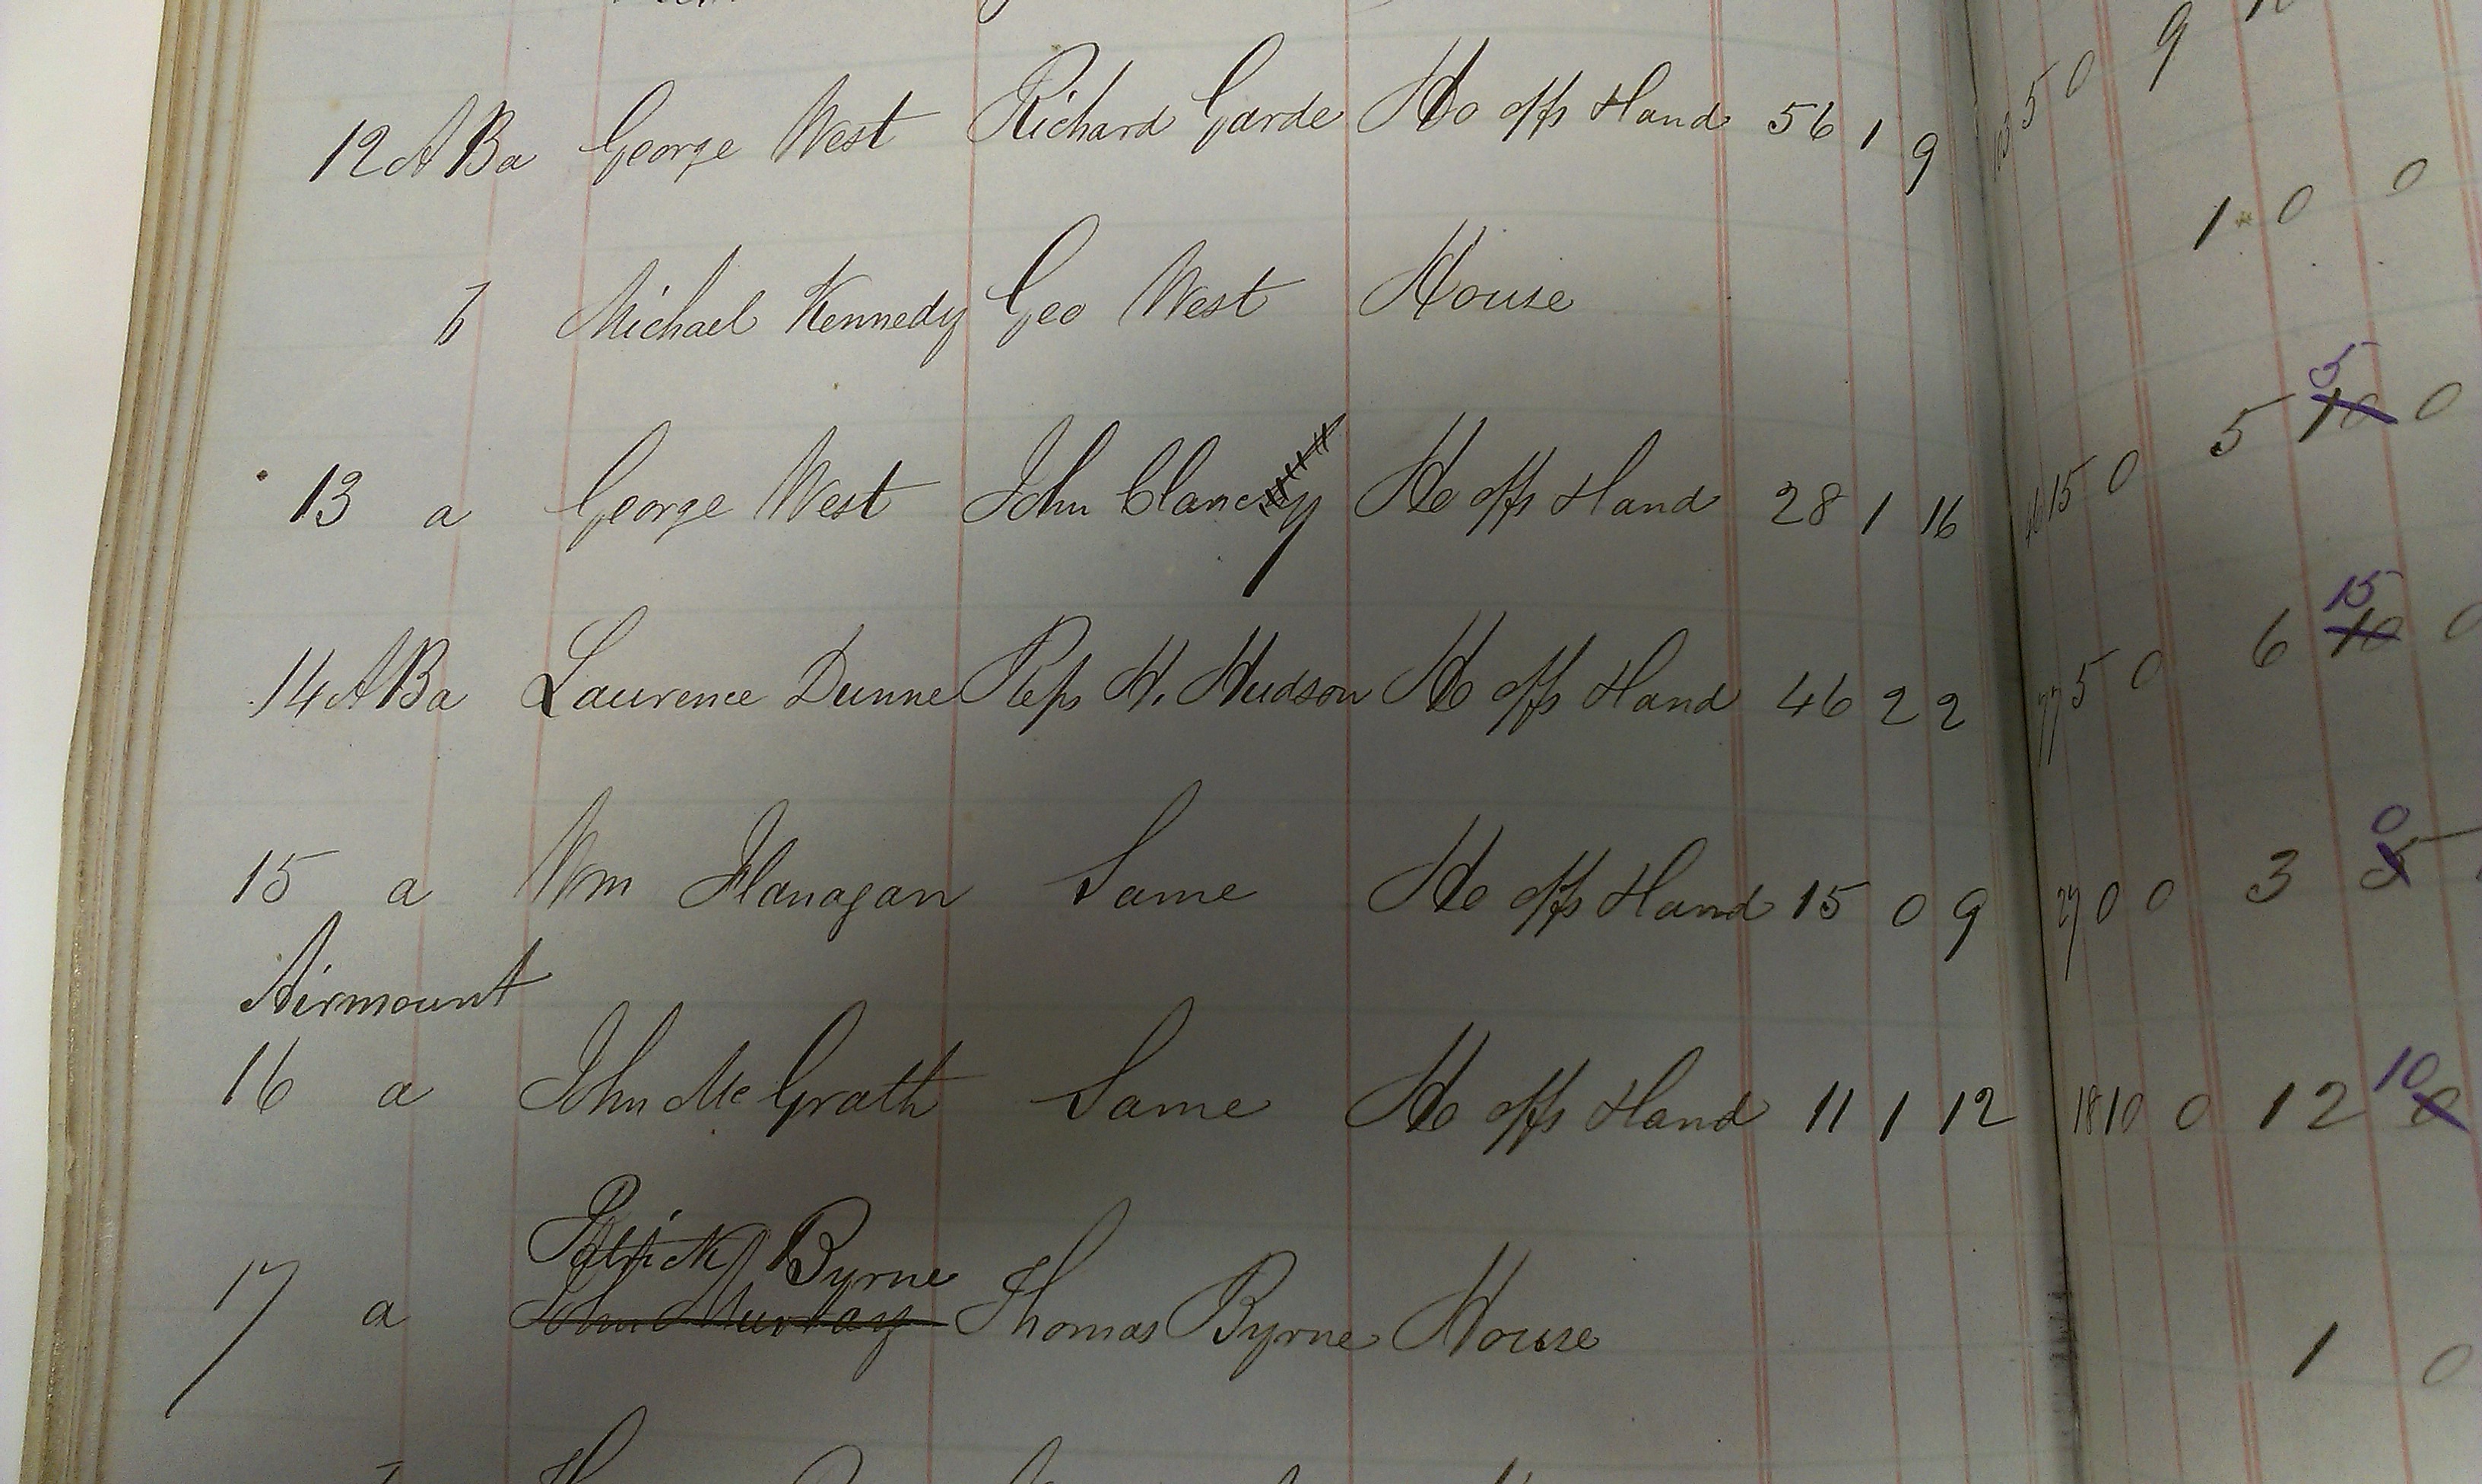 12 A Ba George West Richard Garde Ho offs & Land 56 1 9 103 5 0 9
b Michael Kennedy Geo West House 1 0 0
13 a George West John Clancy Ho offs & Land 28 1 16 46 15 0 5 5 10 0
14 A Ba Laurence Dunne Reps H. Hudson Ho offs & Land 46 2 2 77 5 0 6 15 10 0
15 a Wm Flanagan Same Ho offs & Land 15 0 9 29 0 0 3 0 5
Airmount
16 a John McGrath Same Ho offs & Land 11 1 12 18 10 0 12 10 0
Patrick Byrne
17 a John Murray Thomas Byrne House 1 0